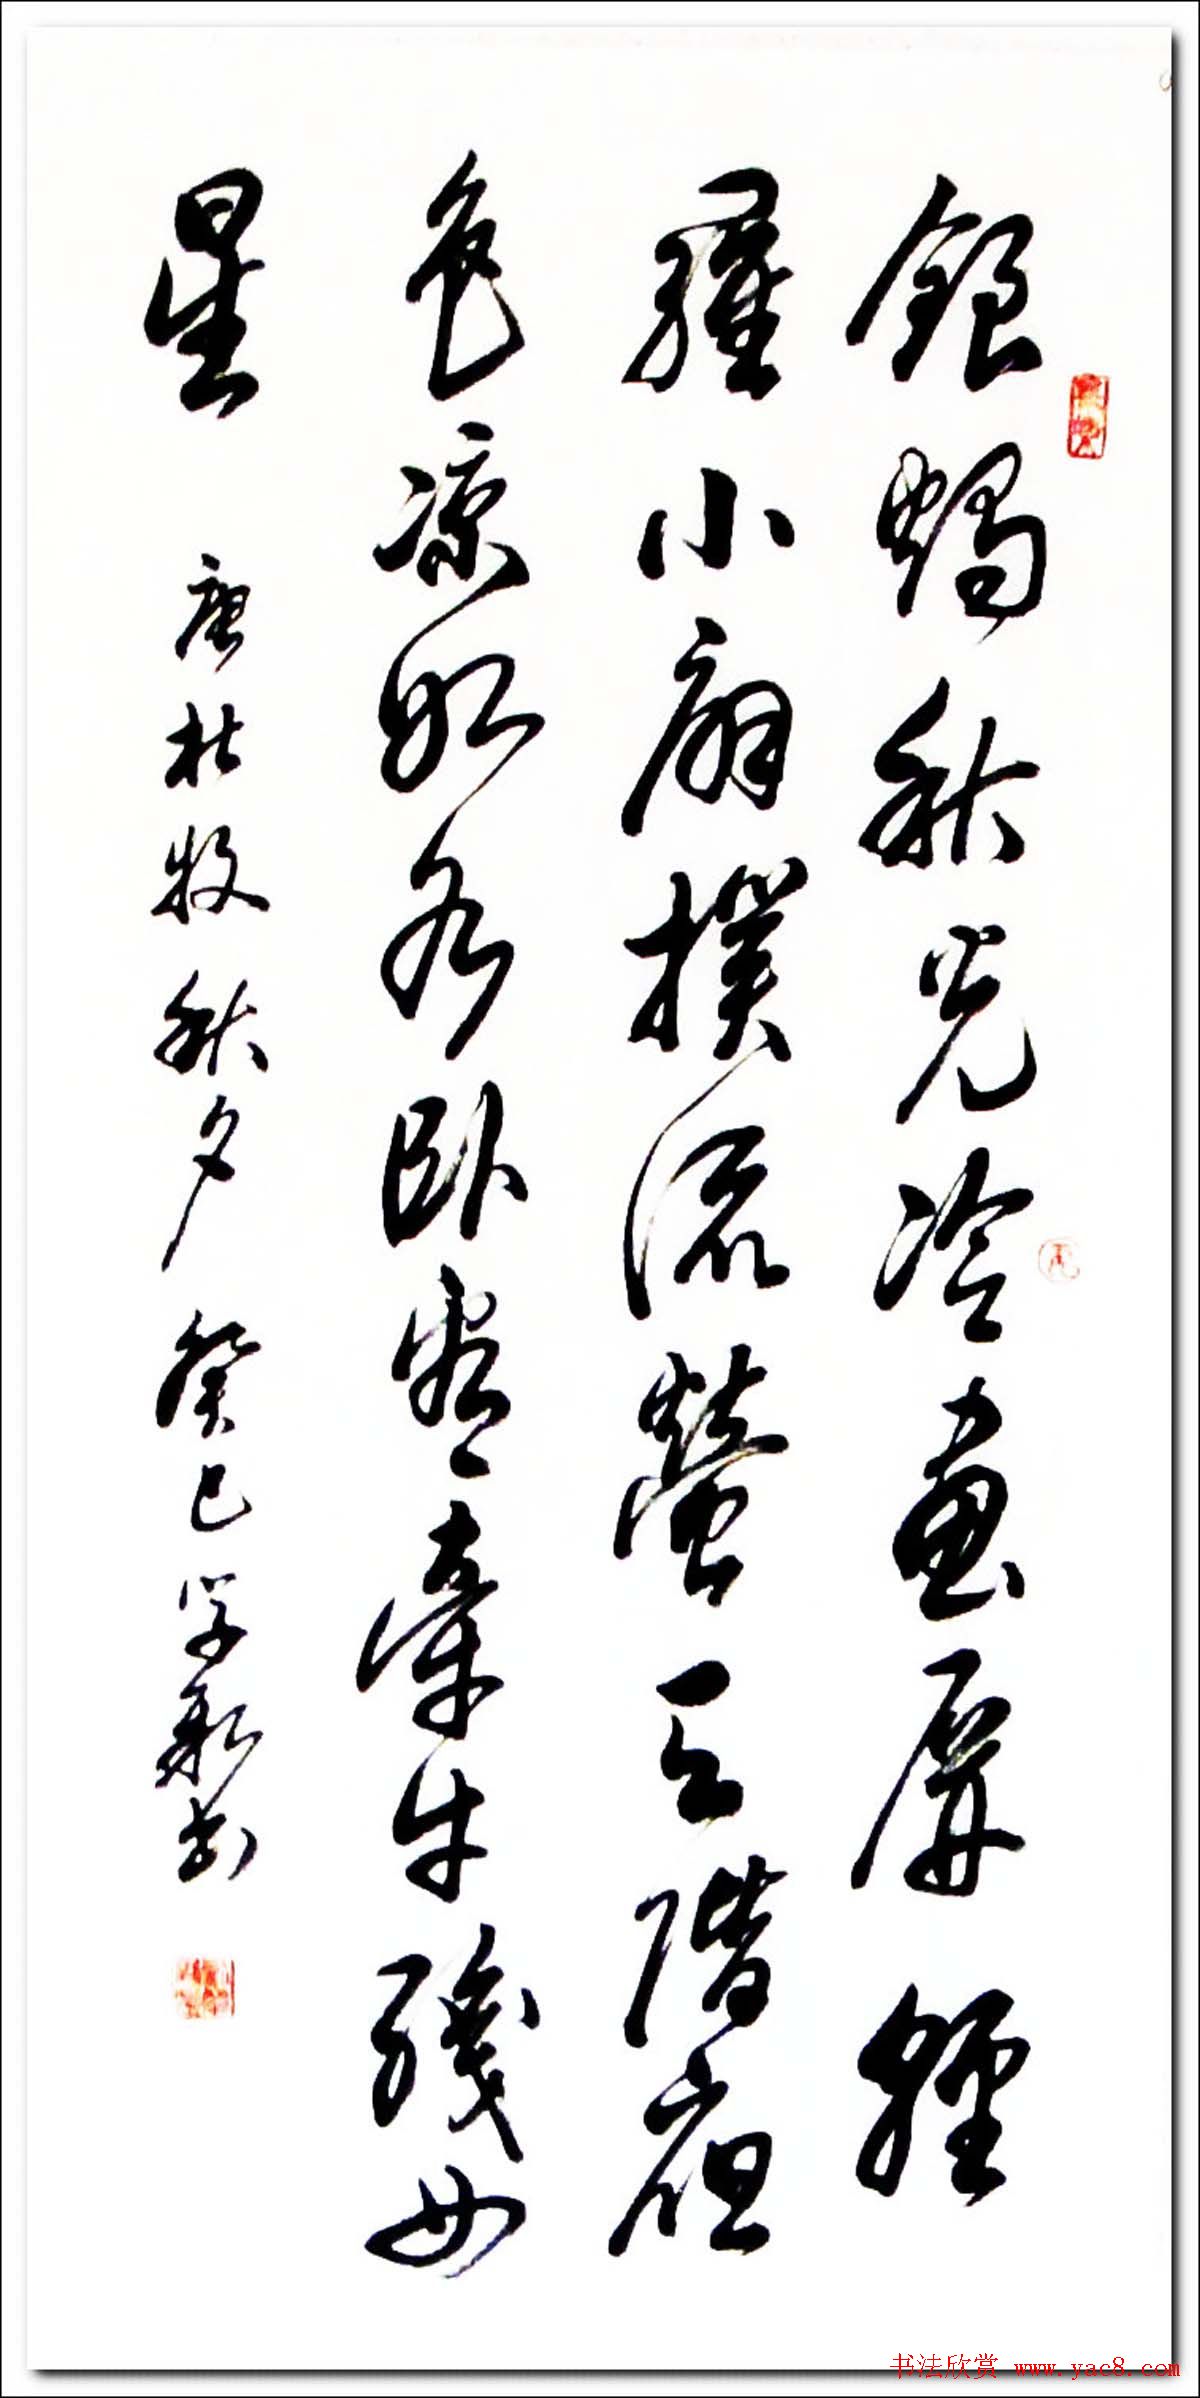 銀燭秋光冷畫屏輕
羅小扇撲流螢天階夜
色涼如水卧看牽牛織女
星 唐杜牧秋夕 癸巳学新书
书法欣赏 www.yac8.com